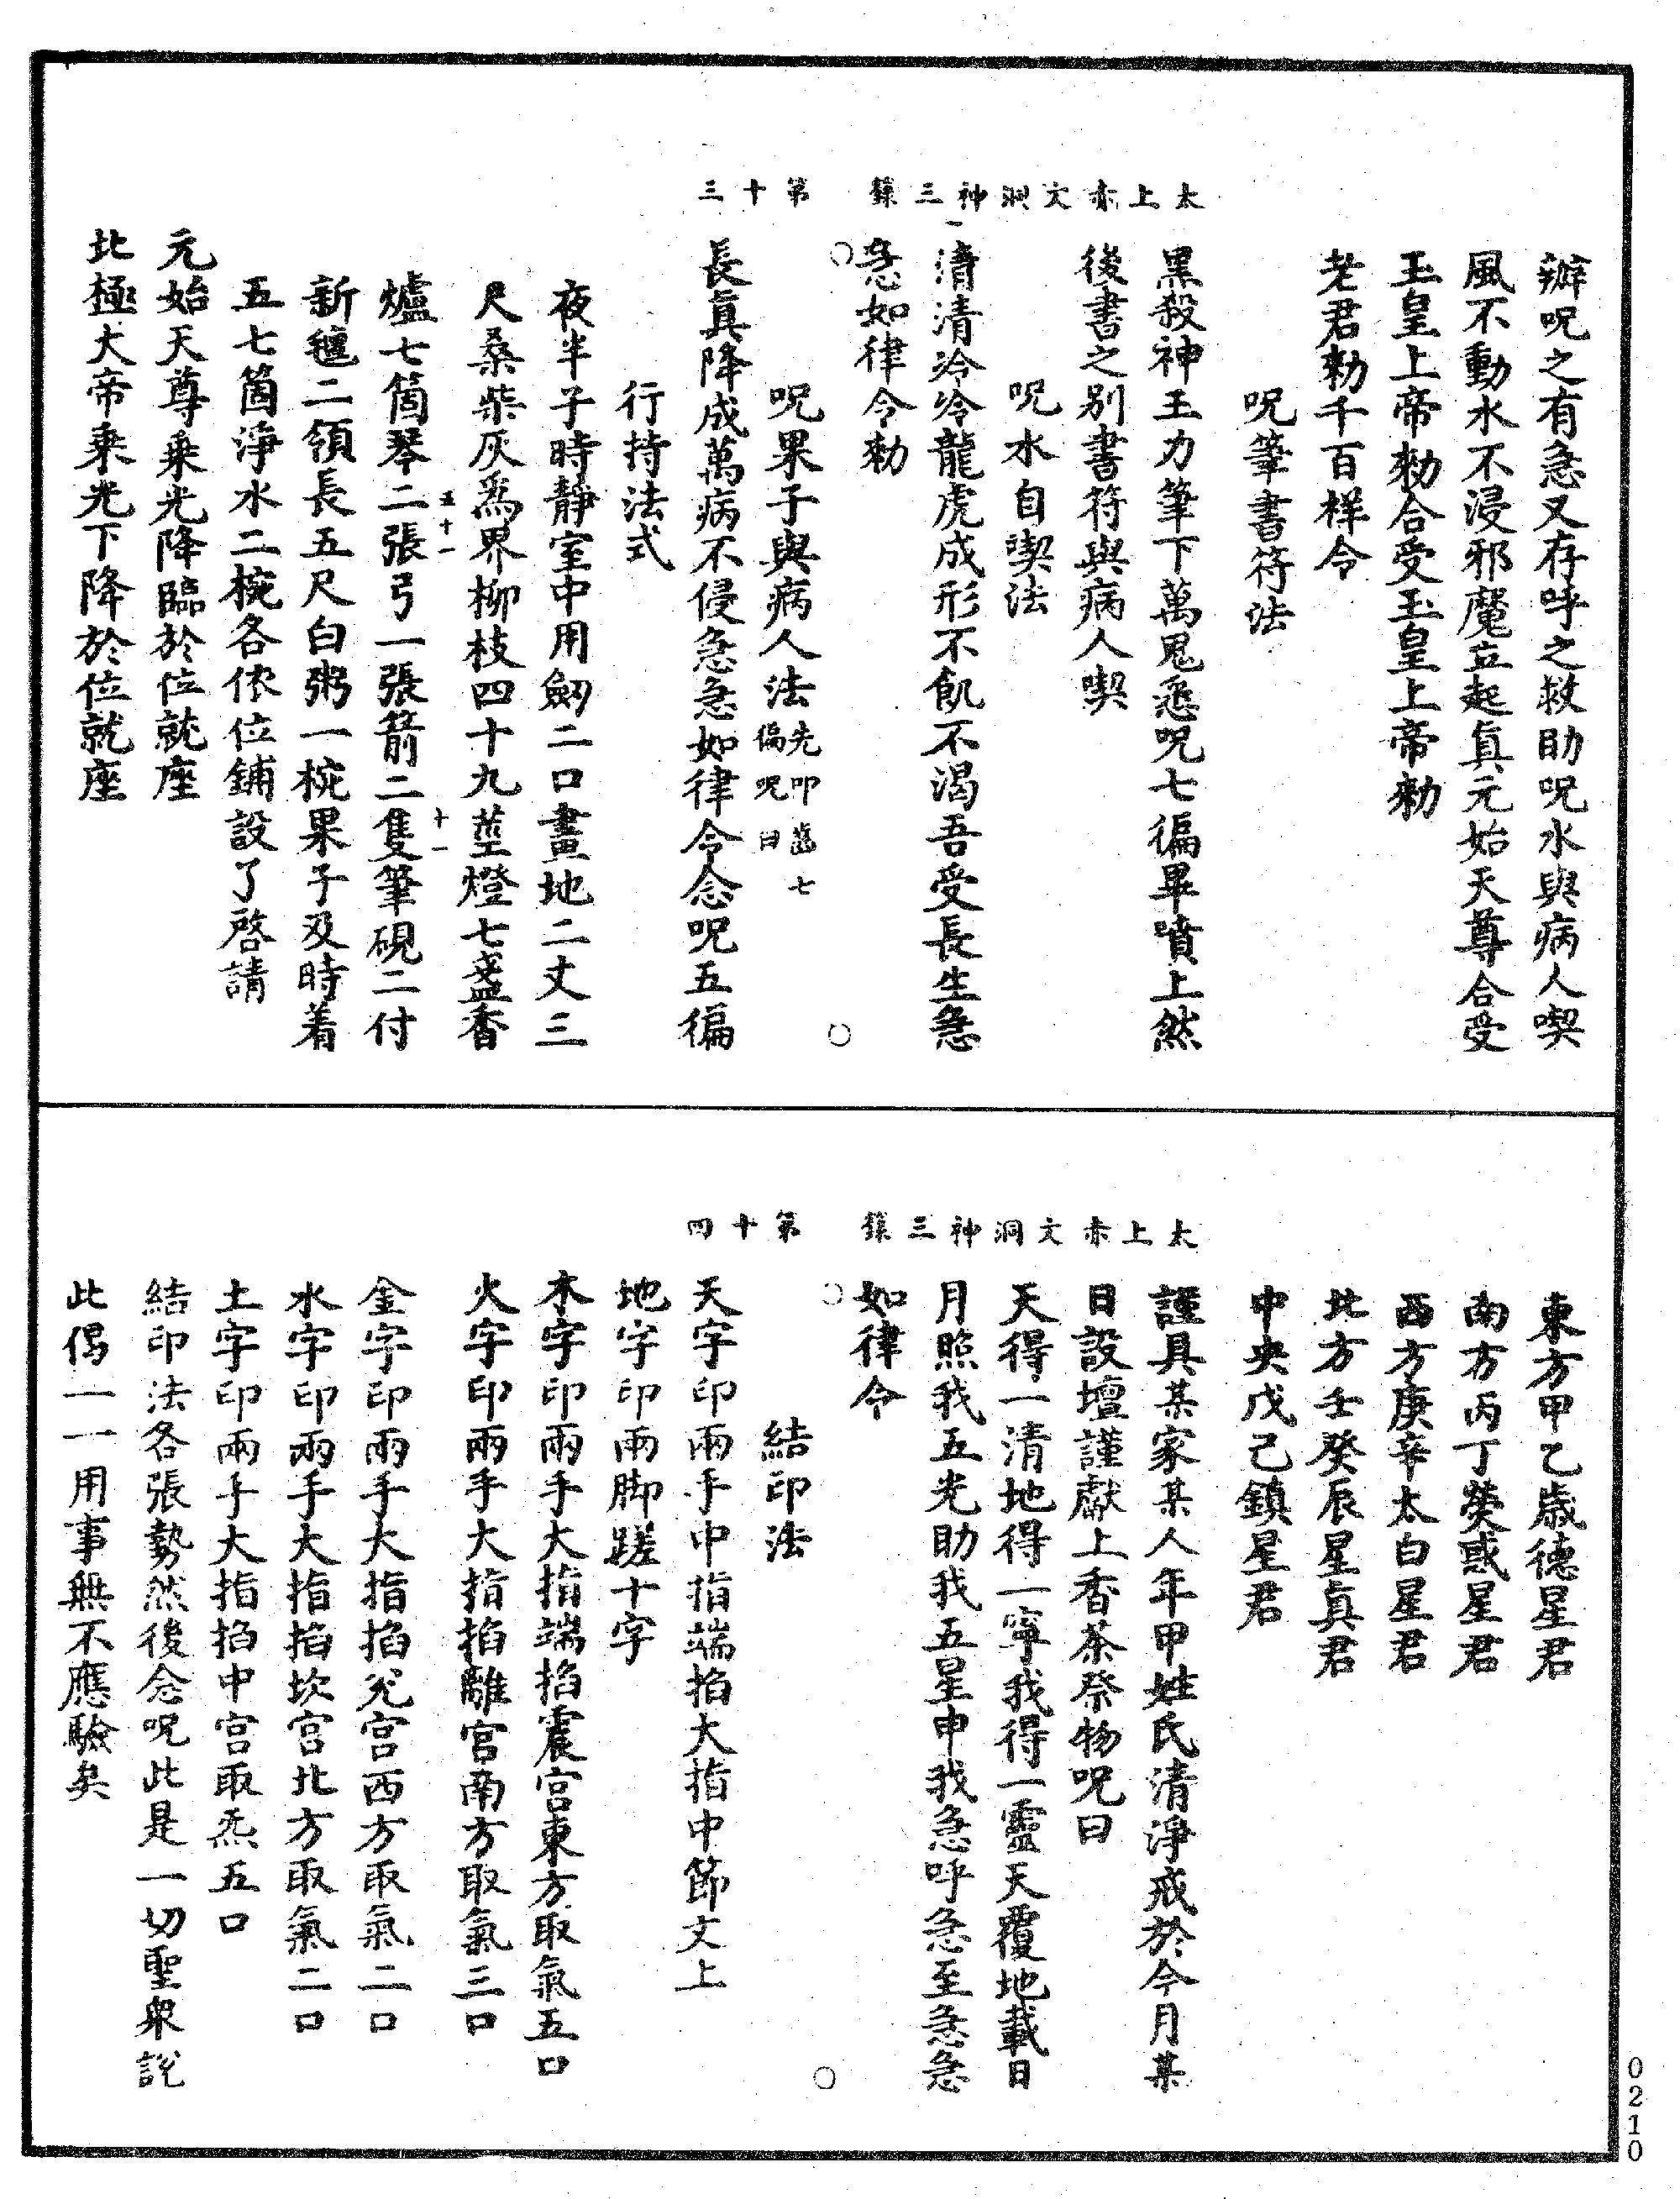 辦呪之有急又存呼之救助呪水與病人喫
風不動水不浸邪魔立起真元始天尊合受
玉皇上帝勑合受玉皇上帝勑
老君勑千百样令
呪筆書符法
黑殺神王力筆下萬鬼愆呪七徧畢噴上然
後書之別書符與病人喫
呪水自喫法
清清冷冷龍虎成形不飢不渴吾受長生急
急如律令勑
太上赤文洞神三籙 第十三
呪果子與病人法先叩齒七徧呪曰
長真降成萬病不侵急急如律令念呪五徧
行持法式
夜半子時靜室中用劒二口畫地二丈三
尺桑柴灰為界柳枝四十九莖燈七盞香
爐七箇琴二張五十一弓一張箭二隻十一筆硯二付
新氊二領長五尺白粥一椀果子及時着
五七箇淨水二椀各依位鋪設了啓請
元始天尊乘光降臨於位就座
北極大帝乘光下降於位就座
東方甲乙歲德星君
南方丙丁熒惑星君
西方庚辛太白星君
北方壬癸辰星真君
中央戊己鎮星君
謹具某家某人年甲姓氏清淨戒於今月某
日設壇謹獻上香茶祭物呪曰
天得一清地得一寧我得一靈天覆地載日
月照我五光助我五星申我急呼急至急急
如律令
太上赤文洞神三籙 第十四
結印法
天字印兩手中指端掐大指中節文上
地字印兩脚蹉十字
木字印兩手大指端掐震宮東方取氣五口
火字印兩手大指掐離宮南方取氣三口
金字印兩手大指掐兌宮西方取氣二口
水字印兩手大指掐坎宮北方取氣二口
土字印兩手大指掐中宮取炁五口
結印法各張勢然後念呪此是一切聖衆說
此偈一一用事無不應驗矣
0210